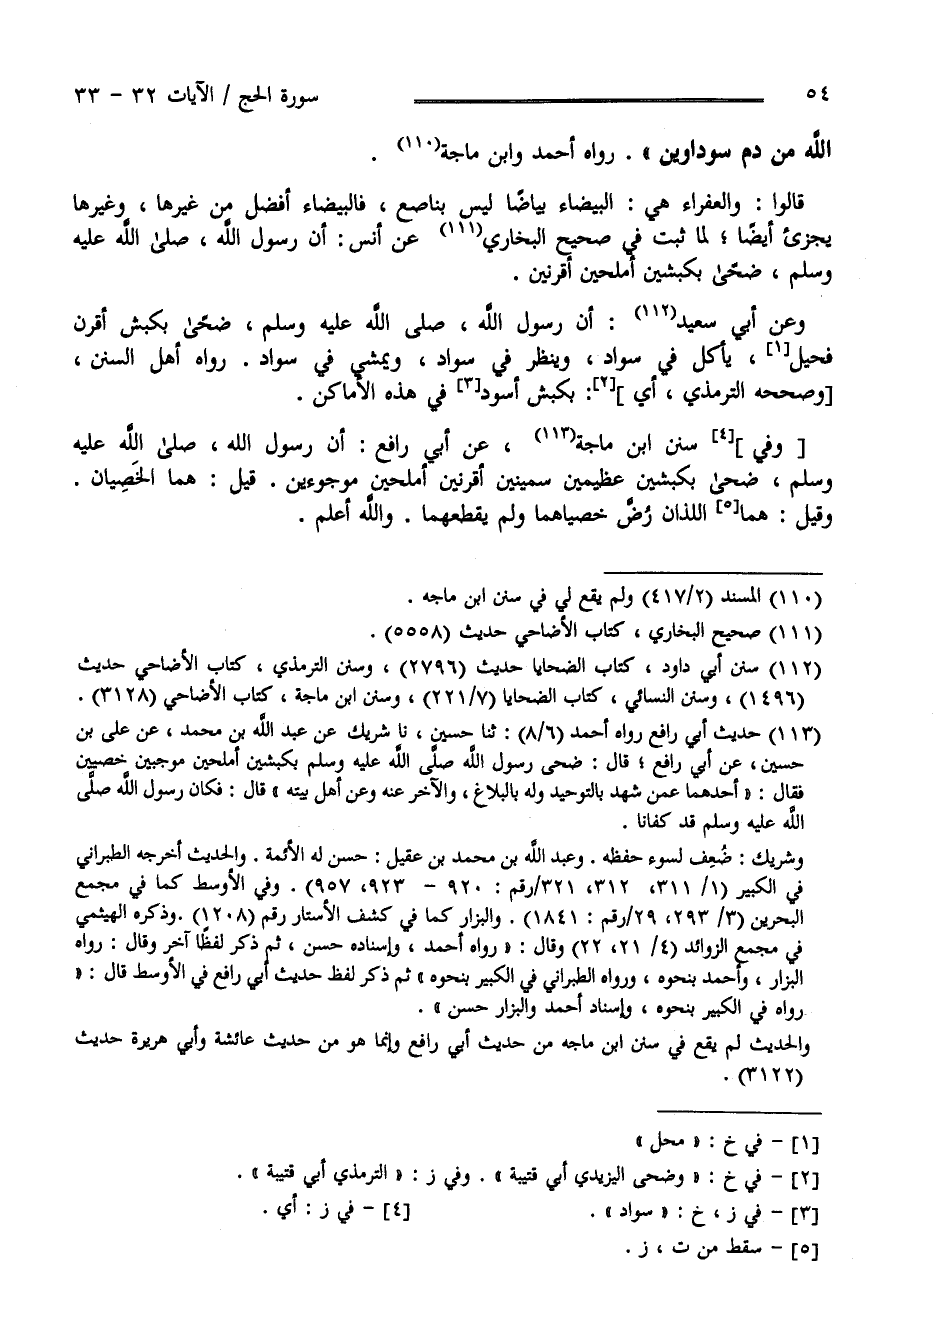 ٥٤ سورة الحج / الآيات ٣٢ – ٣٣
اللَّه من دم سوداوين » . رواه أحمد وابن ماجة(١١٠) .
قالوا : والعفراء هي : البيضاء بياضًا ليس بناصع ، فالبيضاء أفضل من غيرها ، وغيرها
يجزئ أيضًا ؛ لما ثبت في صحيح البخاري(١١١) عن أنس : أن رسول اللَّه ، صلىٰ اللَّه عليه
وسلم ، ضحّىٰ بكبشين أملحين أقرنين .
وعن أبي سعيد(١١٢) : أن رسول اللَّه ، صلى اللَّه عليه وسلم ، ضحّىٰ بكبش أقرن
فحيل[١] ، يأكل في سواد ، وينظر في سواد ، ويمشي في سواد . رواه أهل السنن ،
[وصححه الترمذي ، أي ][٢]: بكبش أسود[٣] في هذه الأماكن .
[ وفي ][٤] سنن ابن ماجة(١١٣) ، عن أبي رافع : أن رسول الله ، صلىٰ اللَّه عليه
وسلم ، ضحىٰ بكبشين عظيمين سمينين أقرنين أملحين موجوءين . قيل : هما الخَصِيان .
وقيل : هما[٥] اللذان رُضَّ خصياهما ولم يقطعهما . واللَّه أعلم .
(١١٠) المسند (٤١٧/٢) ولم يقع لي في سنن ابن ماجه .
(١١١) صحيح البخاري ، كتاب الأضاحي حديث (٥٥٥٨) .
(١١٢) سنن أبي داود ، كتاب الضحايا حديث (٢٧٩٦) ، وسنن الترمذي ، كتاب الأضاحي حديث
(١٤٩٦) ، وسنن النسائي ، كتاب الضحايا (٢٢١/٧) ، وسنن ابن ماجة ، كتاب الأضاحي (٣١٢٨) .
(١١٣) حديث أبي رافع رواه أحمد (٨/٦) : ثنا حسين ، نا شريك عن عبد اللَّه بن محمد ، عن على بن
حسين ، عن أبي رافع ؛ قال : ضحى رسول اللَّه صلَّى اللَّه عليه وسلم بكبشين أملحين موجبين خصيين
فقال : « أحدهما عمن شهد بالتوحيد وله بالبلاغ ، والآخر عنه وعن أهل بيته » قال : فكان رسول اللَّه صلَّى
اللَّه عليه وسلم قد كفانا .
وشريك : ضُعِف لسوء حفظه . وعبد اللَّه بن محمد بن عقيل : حسن له الأئمة . والحديث أخرجه الطبراني
في الكبير (١/ ٣١١، ٣١٢، ٣٢١/رقم : ٩٢٠ – ٩٢٣، ٩٥٧) . وفي الأوسط كما في مجمع
البحرين (٣/ ٢٩٣، ٢٩/رقم : ١٨٤١) . والبزار كما في كشف الأستار رقم (١٢٠٨) .وذكره الهيثمي
في مجمع الزوائد (٤/ ٢١، ٢٢) وقال : « رواه أحمد ، وإسناده حسن ، ثم ذكر لفظًا آخر وقال : رواه
البزار ، وأحمد بنحوه ، ورواه الطبراني في الكبير بنحوه » ثم ذكر لفظ حديث أبي رافع في الأوسط قال : «
رواه في الكبير بنحوه ، وإسناد أحمد والبزار حسن » .
والحديث لم يقع في سنن ابن ماجه من حديث أبي رافع وإنما هو من حديث عائشة وأبي هريرة حديث
(٣١٢٢) .
[١] – في خ : « محل »
[٢] – في خ : « وضحى اليزيدي أبي قتيبة » . وفي ز : « الترمذي أبي قتيبة » .
[٣] – في ز ، خ : « سواد » . [٤] – في ز : أي .
[٥] – سقط من ت ، ز .